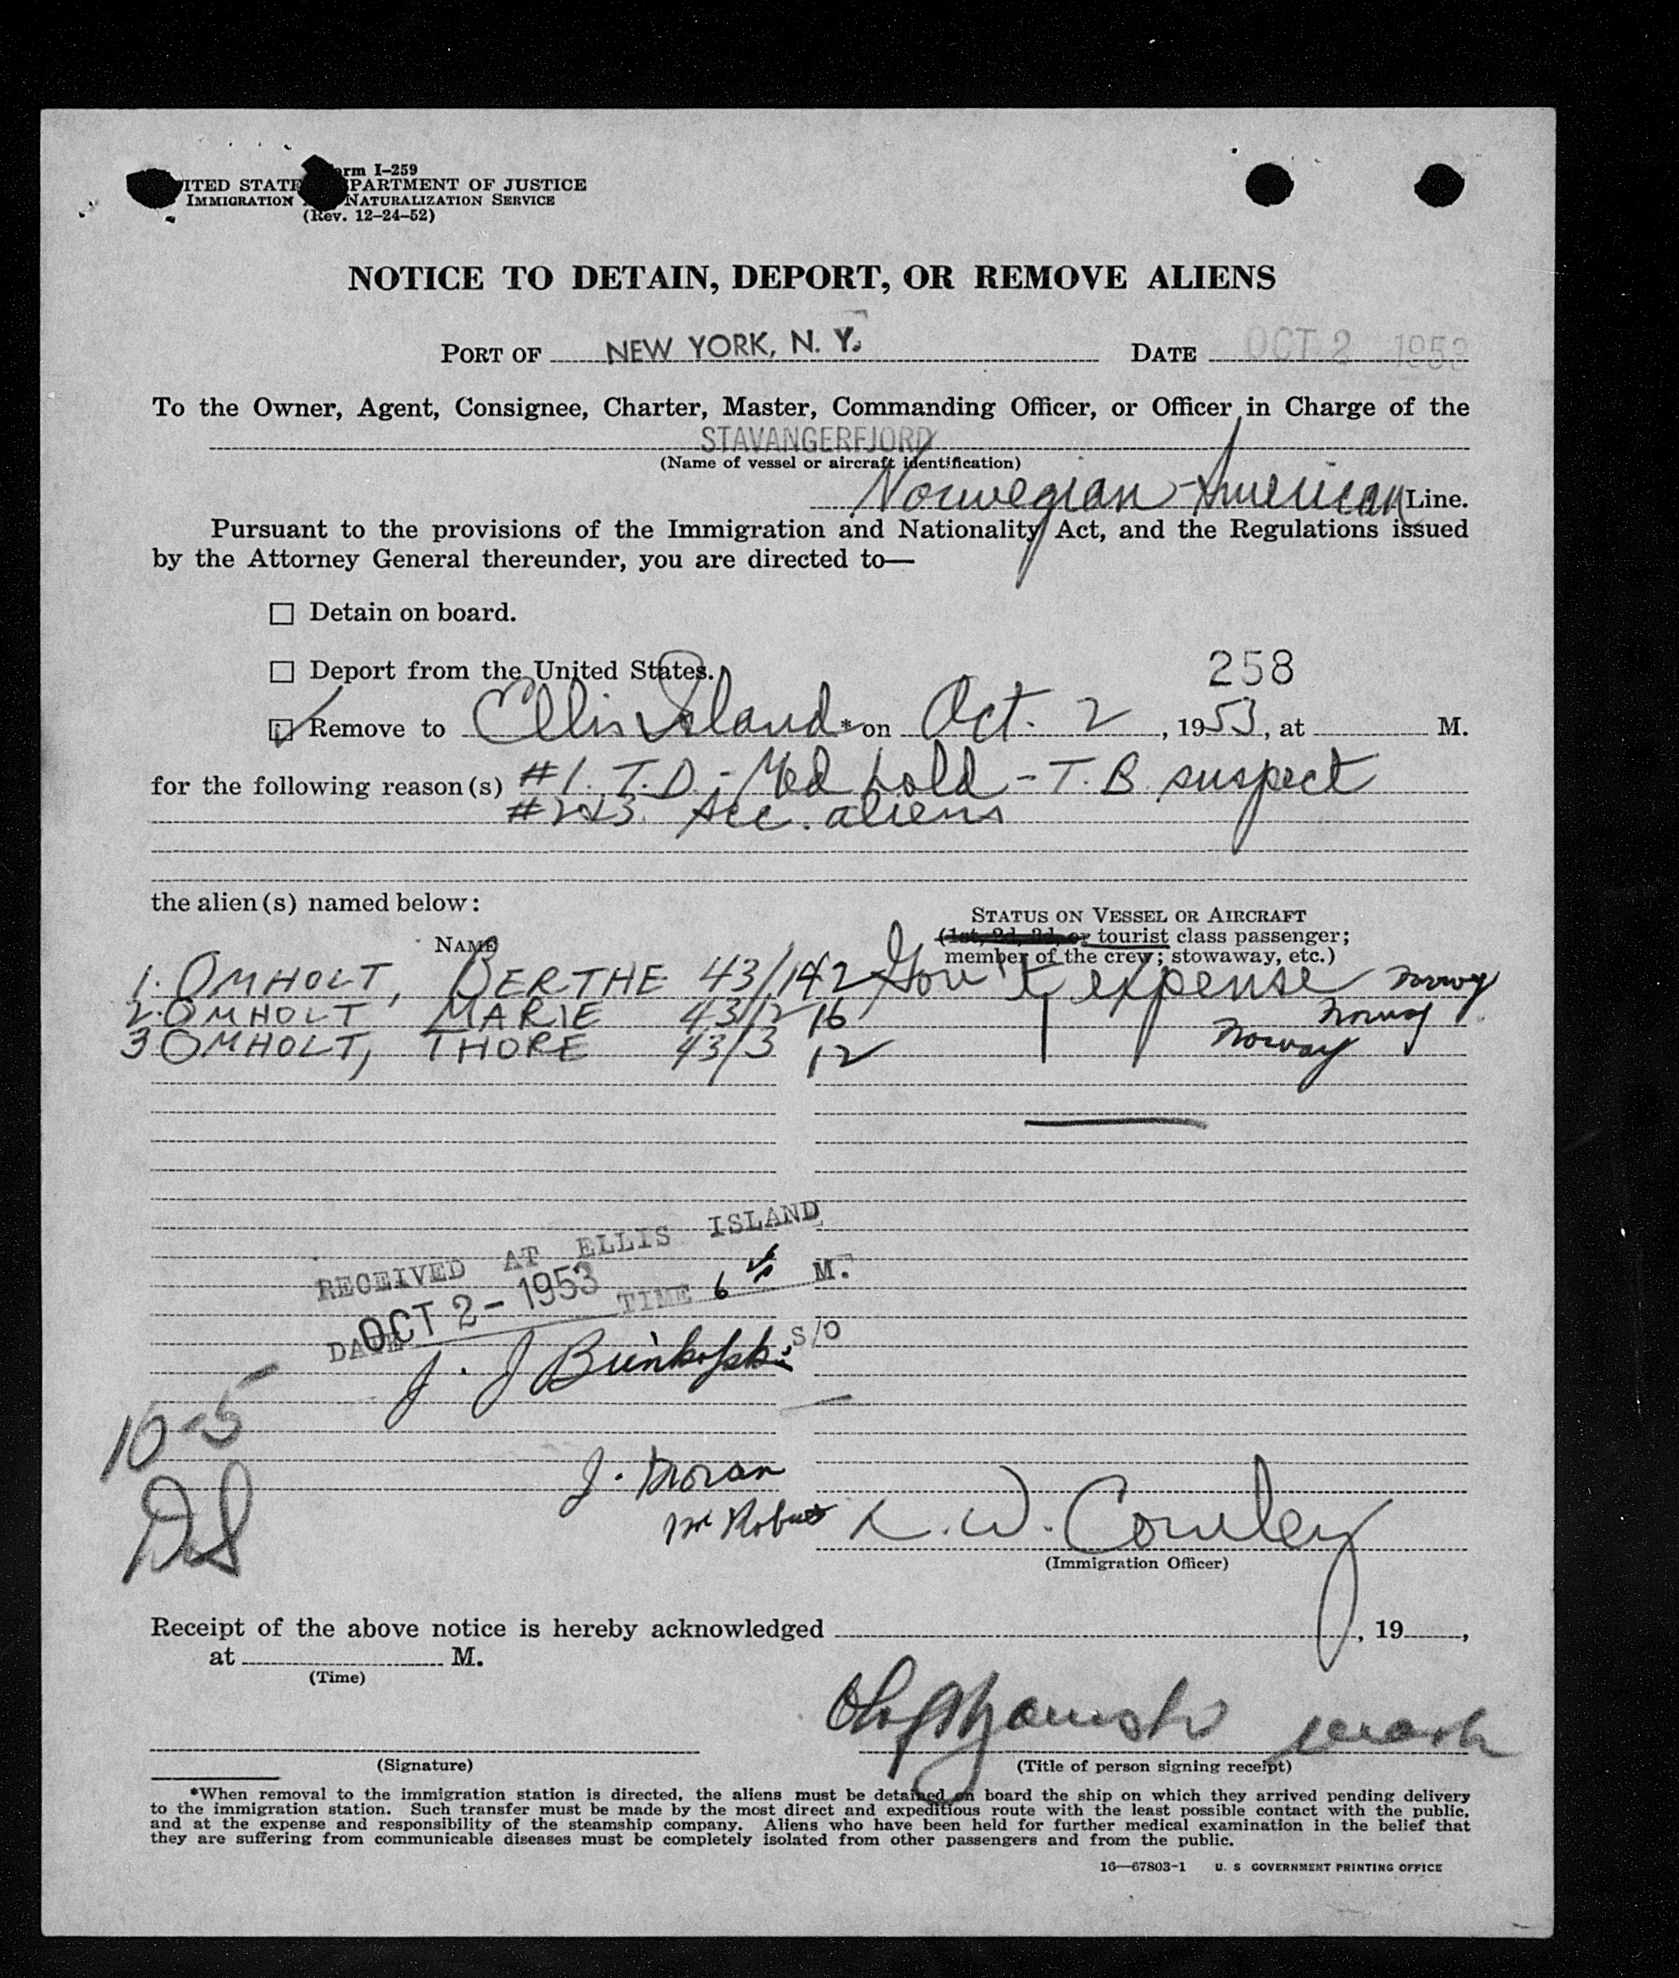 Form I-259
UNITED STATES DEPARTMENT OF JUSTICE
IMMIGRATION AND NATURALIZATION SERVICE
(Rev. 12-24-52)
NOTICE TO DETAIN, DEPORT, OR REMOVE ALIENS
PORT OF NEW YORK, N. Y. DATE OCT 2 1953
To the Owner, Agent, Consignee, Charter, Master, Commanding Officer, or Officer in Charge of the
STAVANGERFJORD
(Name of vessel or aircraft identification)
Norwegian-American Line.
Pursuant to the provisions of the Immigration and Nationality Act, and the Regulations issued
by the Attorney General thereunder, you are directed to—
Detain on board.
Deport from the United States.
258
Remove to Ellis Island * on Oct. 2, 1953, at M.
for the following reason(s) #1. T.D. - Med hold - T.B. suspect
#2&3. Acc. aliens
the alien(s) named below:
STATUS ON VESSEL OR AIRCRAFT
NAME (1st, 2d, 3d, or tourist class passenger;
member of the crew; stowaway, etc.)
1. OMHOLT, BERTHE 43/1 42 Gov't expense Norway
2. OMHOLT MARIE 43/2 16 Norway
3 OMHOLT, THORE 43/3 12 Norway
RECEIVED AT ELLIS ISLAND
DATE OCT 2- 1953 TIME 6 M.
J. J. S/O
10-5
DS
J. Moran
L. W. Cowley
(Immigration Officer)
Receipt of the above notice is hereby acknowledged , 19 ,
at M.
(Time)
(Signature) (Title of person signing receipt)
*When removal to the immigration station is directed, the aliens must be detained on board the ship on which they arrived pending delivery
to the immigration station. Such transfer must be made by the most direct and expeditious route with the least possible contact with the public,
and at the expense and responsibility of the steamship company. Aliens who have been held for further medical examination in the belief that
they are suffering from communicable diseases must be completely isolated from other passengers and from the public.
16—67803-1 U. S GOVERNMENT PRINTING OFFICE